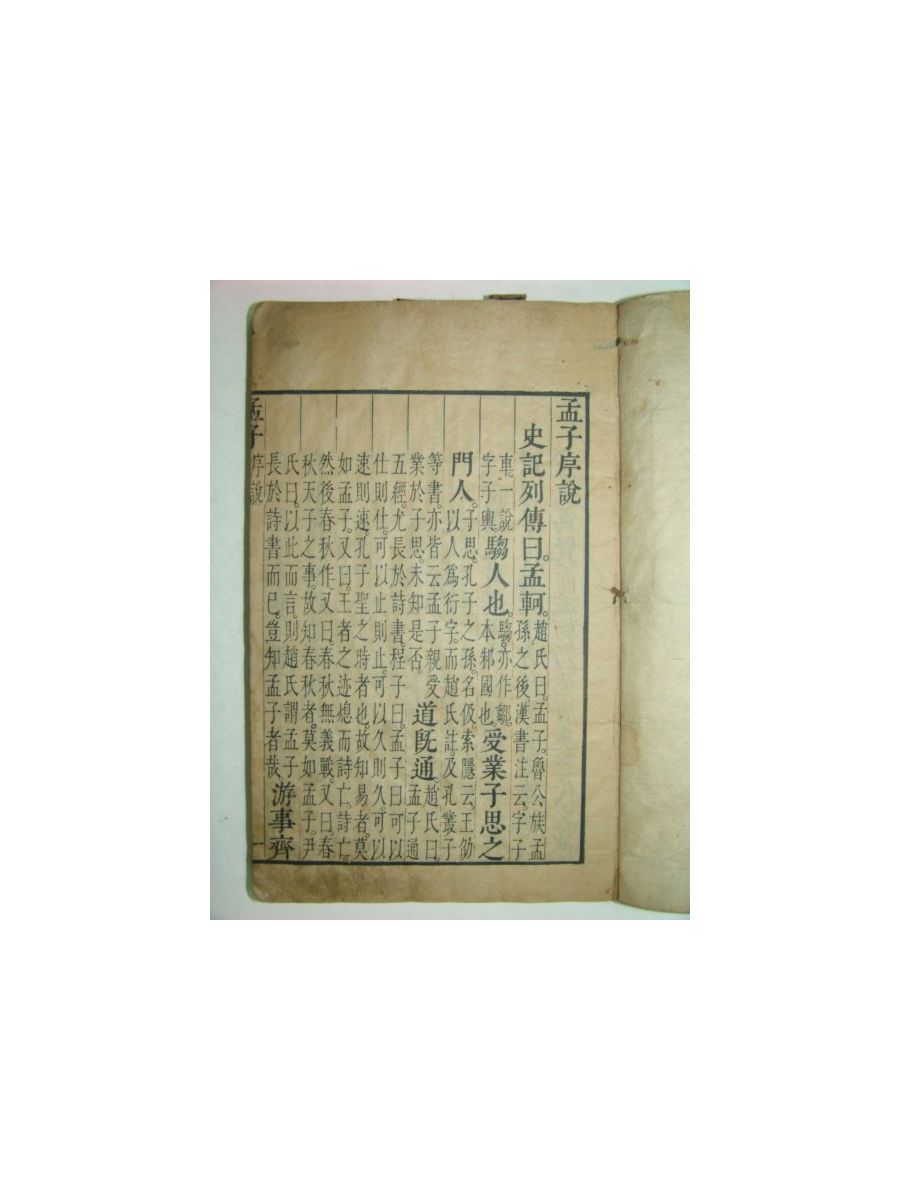 孟子序說
史記列傳曰。孟軻。趙氏曰。孟子。魯公族孟
孫之後。漢書注云。字子
車。一說
字子輿。騶人也。騶亦作鄒。
本邾國也。受業子思之
門人。子思。孔子之孫。名伋。索隱云。王劭
以人爲衍字。而趙氏註。及孔叢子
等書。亦皆云。孟子親受
業於子思。未知是否。道旣通。趙氏曰。
孟子通
五經。尤長於詩書。程子曰。孟子曰。可以
仕則仕。可以止則止。可以久則久。可以
速則速。孔子聖之時者也。故知易者。莫
如孟子。又曰。王者之迹熄而詩亡。詩亡。
然後春秋作。又曰。春秋無義戰。又曰。春
秋天子之事。故知春秋者。莫如孟子。尹
氏曰。以此而言。則趙氏謂孟子
長於詩書而已。豈知孟子者哉游事齊
孟子 序說 一